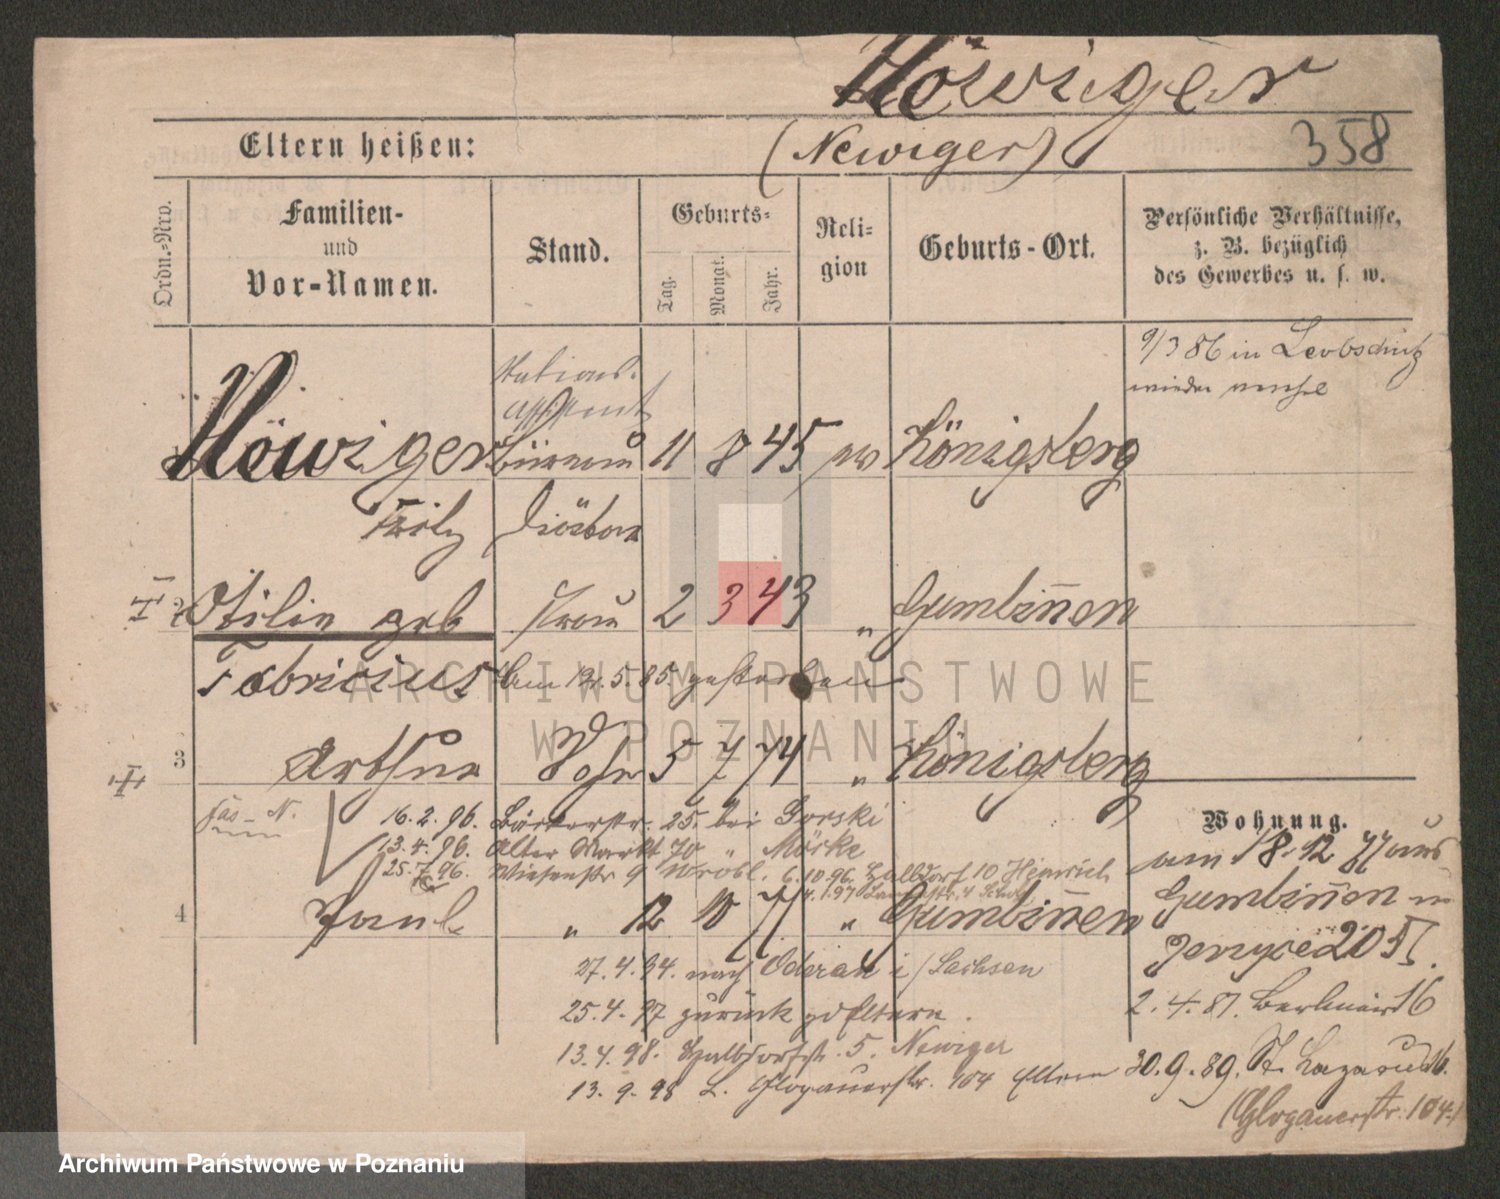 Nöwiger
Eltern heißen:
(Newiger)
358
Ordn.-Nro.
Familien-
und
Vor-Namen.
Stand.
Geburts-
Tag.
Monat.
Jahr.
Reli-
gion
Geburts-Ort.
Persönliche Verhältnisse,
z. B. bezüglich
des Gewerbes u. s. w.
9/3 86 in Leobschütz
wieder
Stations-
Assistent
1 Nöwiger Büreau 11 8 45 ev Königsberg
Fritz Diätar
2 Otilie geb Frau 2 3 43 " Gumbinnen
Fabricius am 5.85. gestorben
3 Arthur Sohn 5 7 74 " Königsberg
16.2.96. Bäckerstr. 25. bei Gorski
13.4.96. Alter Markt 70 " Mörke
25.7.96. Wiesenstr 9 Wrobl. 6.10.96. Halbdorf 10 Heinrich
4.1.97
4 Paul " 12 10 77 " Gumbinnen
27.4.94. nach Oderan i/Sachsen
25.4.97 zurück zd Eltern.
13.4.98. Halbdorfstr. 5. Newiger
13.9.98 L. Glogauerstr. 104 Eltern
Wohnung.
am 18.12 77 aus
Gumbinnen in
Jerzyce 205I.
2.4.87. Berliner 16
30.9.89. St. Lazarus 16.
(Glogauerstr. 104.)
ARCHIWUM PAŃSTWOWE
W POZNANIU
Archiwum Państwowe w Poznaniu